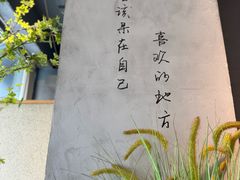 该呆在自己
喜欢的地方